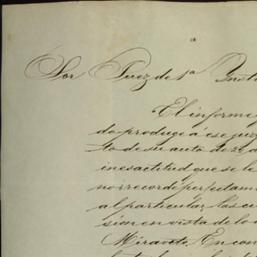 Sor Juez de 1ª Inst
El informe
do produge á ese juz
to de su auto de 22 d
inesactitud que se le
no recorde perfectam
al particular las ce
sion en vista de lo
Miravete. En con